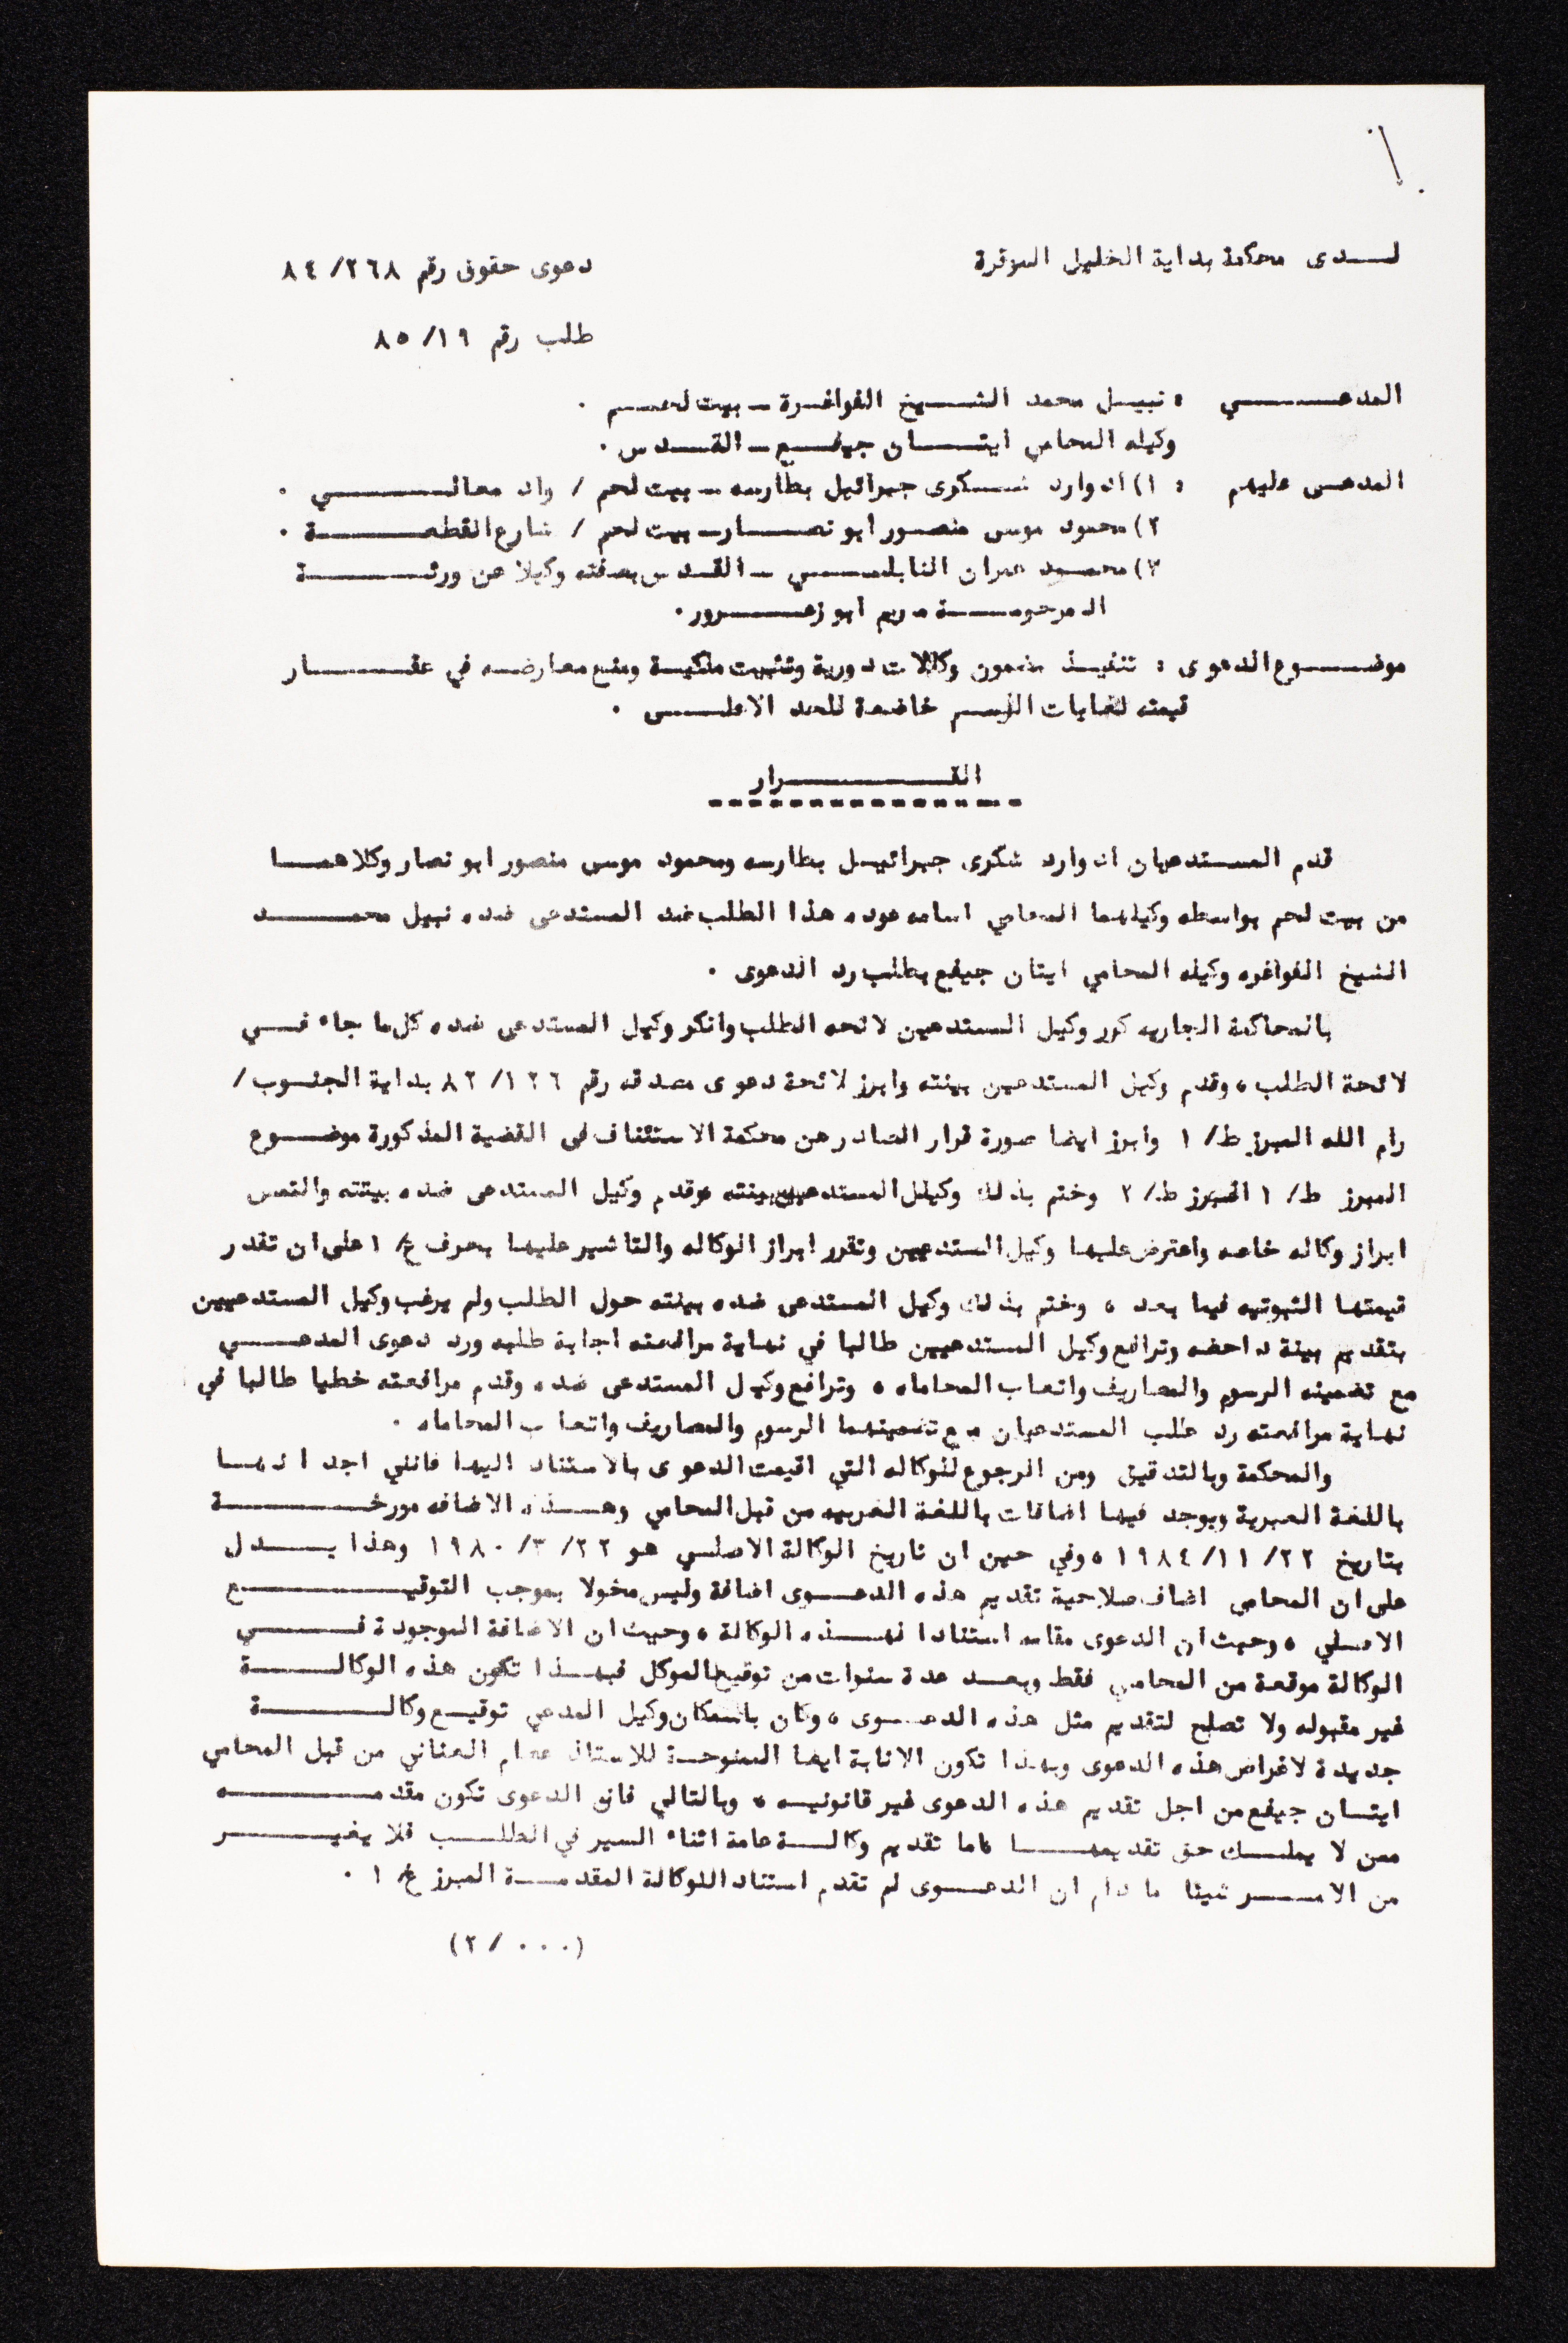 لـــدى محكمة بداية الخليل الموقرة
دعوى حقوق رقم ٢٦٨/ ٨٤
طلب رقم ١٩/ ٨٥
المدعـــــي : نبيـل محمد الشـــيخ الفواغـرة ــ بيت لحـــم .
وكيله المحامي ايتـــان جيفــع ــ القـــدس .
المدعـى عليهم : ١) ادوارد شـــكرى جبرائيل بطارسه ــ بيت لحم / واد معالـــــي .
٢) محمود موسى منصــور ابو نصـــار ــ بيت لحم / شارع القطعـــــة .
٣) محمــد عمران النابلســـي ــ القـدس بصفته وكيلا عن ورثـــــة
المرحومـــة مريم ابو زعـــرور .
موضـــوع الدعوى : تنفيــذ مضمون وكالات دورية وتثبيت ملكيـة ومنع معارضـه في عقـــــار
قيمته لغايات الرسـم خاضعة للحد الاعلــى .
القـــــــرار
قدم المســتدعيان ادوارد شكرى جبرائيــل بطارسه ومحمود موسى منصور ابو نصار وكلاهمــا
من بيت لحم بواسطه وكيلهما المحامي اسامه عوده هذا الطلب ضد المستدعى ضده نبيل محمـــــد
الشيخ الفواغره وكيله المحامي ايتان جيفع بطلب رد الدعوى .
بالمحاكمة الجاريه كرر وكيل المستدعين لائحه الطلب وانكر وكيل المستدعى ضده كل ما جاء فـــي
لائحة الطلب ، وقدم وكيل المستدعين بينته وابرز لائحة دعوى مصدقه رقم ١٢٦/ ٨٢ بداية الجنـوب /
رام الله المبرز ط/ ١ وابرز ايضا صورة قرار الصادر عن محكمة الاستئناف في القضية المذكورة موضـــوع
المبرز ط/ ١ المبرز ط/ ٢ وختم بذلك وكيل المستدعيين بينته وقدم وكيل المستدعى ضده بيتته والتمس
ابراز وكاله خاصه واعترض عليها وكيل المستدعيين وتقرر ابراز الوكاله والتاشير عليها بحرف ع/ ١ على ان تقدر
قيمتها الثبوتيه فيما بعد ، وختم بذلك وكيل المستدعى ضده بينته حول الطلب ولم يرغب وكيل المستدعيين
بتقديم بينة داحضه وترافع وكيل المستدعيين طالبا في نهاية مرافعته اجابة طلبه ورد دعوى المدعـــي
مع تضمينه الرسوم والمصاريف واتعاب المحاماه ، وترافع وكيل المستدعى ضده وقدم مرافعته خطيا طالبا في
نهاية مرافعته رد طلب المستدعيان مع تضمينهما الرسوم والمصاريف واتعاب المحاماه .
والمحكمة وبالتدقيق ومن الرجوع للوكاله التي اقيمت الدعوى بالاستناد اليها فانني اجد انهــا
باللغة العبرية ويوجد فيها اضافات باللغة العربيه من قبل المحامي وهــذه الاضافه مورخـــــة
بتاريخ ٢٢/ ١١/ ١٩٨٤ ، وفي حين ان تاريخ الوكالة الاصلـي هو ٢٢/ ٣/ ١٩٨٠ وهذا يـــدل
على ان المحامى اضاف صلاحية تقديم هذه الدعــوى اضافة وليس مخولا بموجب التوقيـــــع
الاصلي ، وحيث ان الدعوى مقامه استنادا لهــذه الوكالة ، وحيث ان الاضافة الموجودة فـــي
الوكالة موقعة من المحامي فقط وبعــد عدة سنوات من توقيع الموكل فبهــذا تكون هذه الوكالـــة
غير مقبوله ولا تصلح لتقديم مثل هذه الدعــوى ، وكان باسمكان وكيل المدعي توقيــع وكالـــــة
جديدة لاغراض هذه الدعوى وبهذا تكون الانابة ايضا الممنوحــة للاستاذ عصام العناني من قبل المحامي
ايتــان جيفع من اجل تقديم هذه الدعوى غير قانونيــه ، وبالتالي فان الدعوى تكون مقدمـــــه
ممن لا يملــك حق تقديمهـــا اما تقديم وكالــة عامة اثناء السير في الطلــب فلا يغيـــــر
من الامـــر شيئا ما دام ان الدعــوى لم تقدم استناد اللوكالة المقدمــة المبرز ع/ ١ .
(٢ / ٠٠٠)